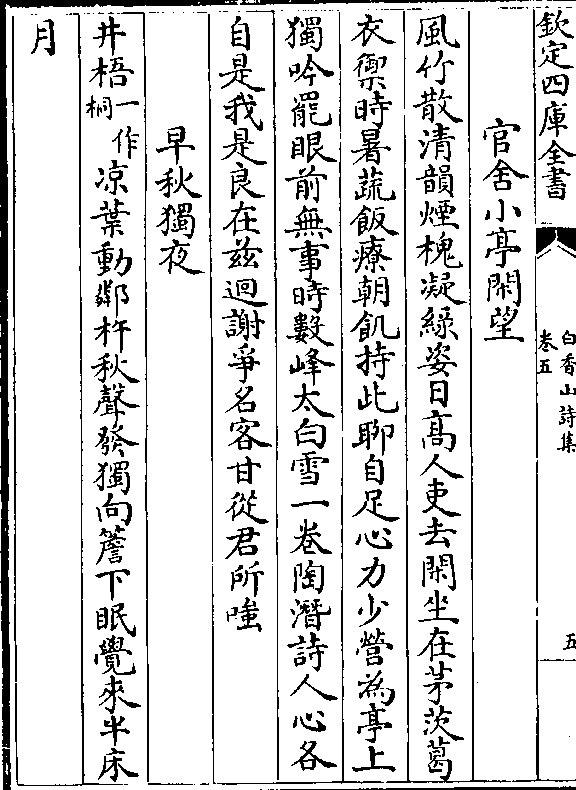 欽定四庫全書
白香山詩集
卷五
五
官舍小亭閑望
風竹散清韻煙槐凝綠姿日髙人吏去閑坐在茅茨葛
衣禦時暑蔬飯療朝飢持此聊自足心力少營為亭上
獨吟罷眼前無事時數峰太白雪一卷陶潛詩人心各
自是我是良在茲迴謝爭名客甘從君所嗤
早秋獨夜
井梧一作桐凉葉動鄰杵秋聲發獨向簷下眠覺來半床
月